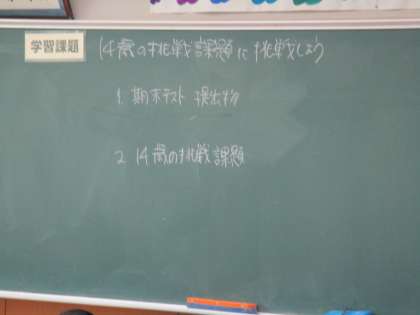 学習課題
14歳の挑戦課題に挑戦しよう
1. 期末テスト 提出物
2. 14歳の挑戦課題